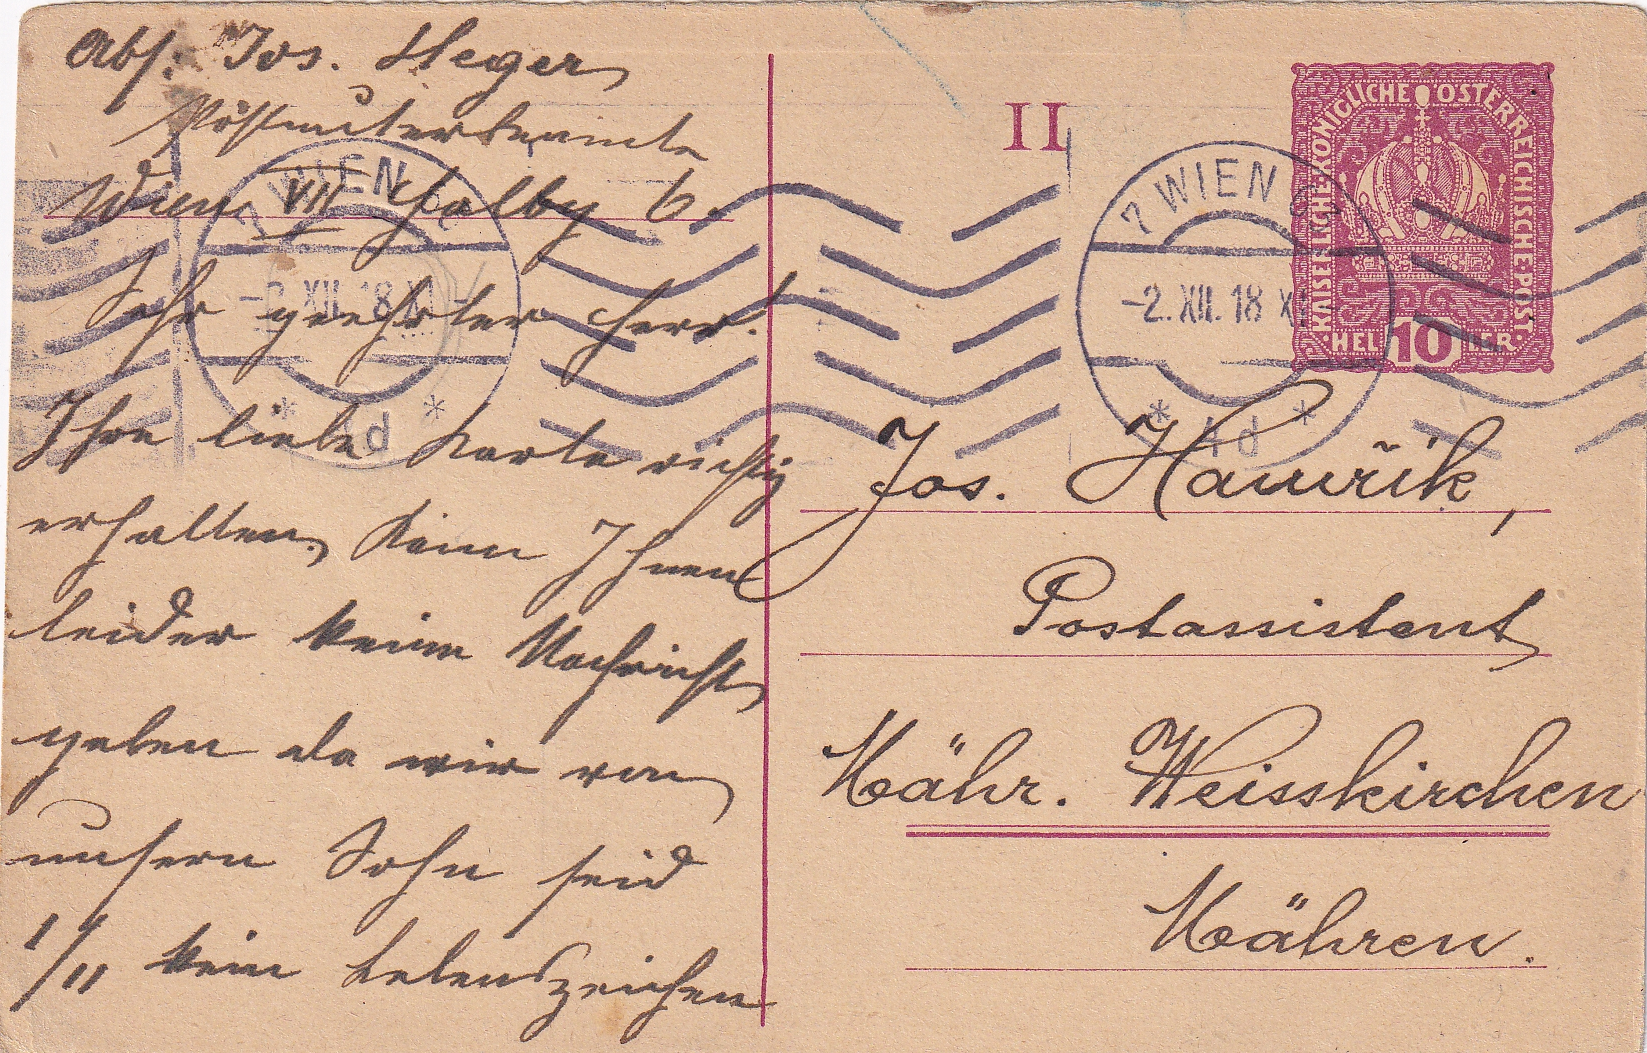 Abs. Jos. Heger
Postunterbeamte
Wien VII Halbg 6.
Sehr geehrter Herr!
Ihre liebe Karte richtig
erhalten, kann Ihnen
leider keine Nachricht
geben da wir von
unsern Sohn seid
1/11 kein Lebenszeichen
II
KAISERLICHE·KÖNIGLICHE ÖSTERREICHISCHE·POST·
HEL 10 LER
7 WIEN
-2. XII. 18 XI-
* 4d *
7 WIEN
-2. XII. 18 XI
* 4d *
Jos. Hamřík,
Postassistent
Mähr. Weisskirchen
Mähren.